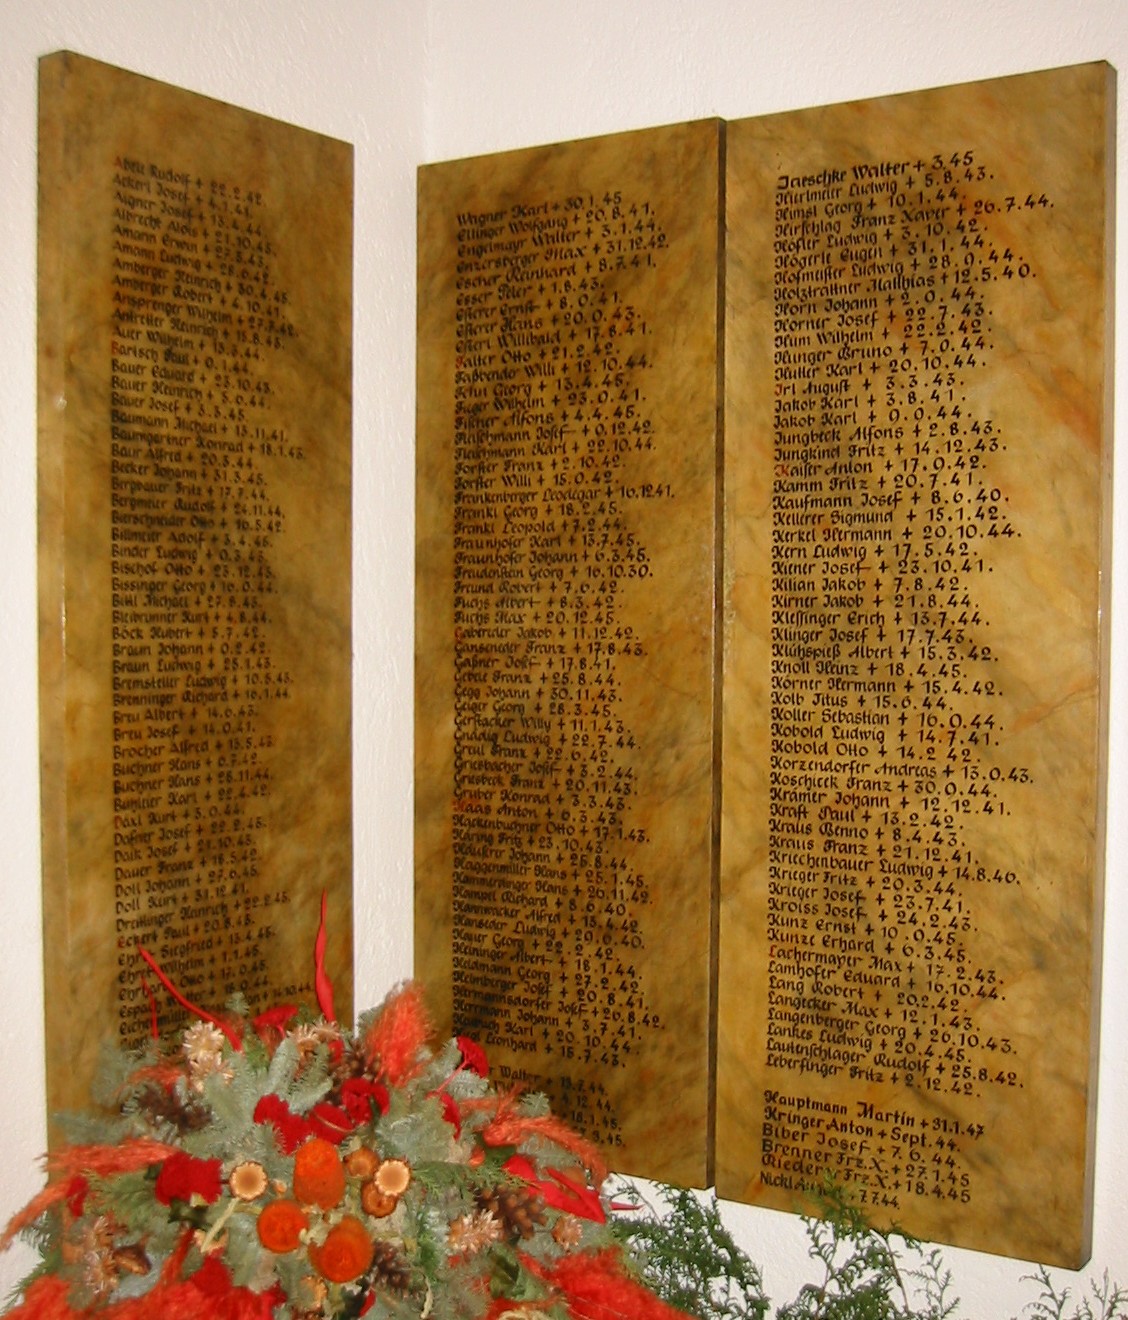 Abele Rudolf + 22.2.42.
Ackerl Josef + 4.1.41.
Aigner Josef + 13.4.44.
Albrecht Alois + 21.10.43.
Amann Erwin + 27.8.43.
Amann Ludwig + 28.6.42.
Amberger Heinrich + 30.4.45.
Amberger Robert + 4.10.41.
Ansprenger Wilhelm + 27.7.42.
Antretter Heinrich + 15.8.45.
Auer Wilhelm + 15.3.44.
Bartsch Paul + 9.1.44.
Bauer Eduard + 23.10.43.
Bauer Heinrich + 3.6.44.
Bauer Josef + 3.3.45.
Baumann Michael + 13.11.41.
Baumgartner Konrad + 18.1.43.
Baur Alfred + 20.3.44
Becker Johann + 31.3.45.
Bergbauer Fritz + 17.7.44.
Bergmeier Rudolf + 24.11.44.
Bierschneider Otto + 16.5.42.
Billmeier Adolf + 3.4.45.
Binder Ludwig + 9.3.45.
Bischof Otto + 23.12.43.
Bissinger Georg + 16.9.44.
Bittl Michael + 27.8.43.
Bleibrunner Kurt + 4.8.44.
Böck Hubert + 5.7.42.
Braun Johann + 9.2.42.
Braun Ludwig + 25.1.43.
Bremsteller Ludwig + 10.5.43.
Brenninger Richard + 16.1.44.
Breu Albert + 14.6.43.
Breu Josef + 14.9.41.
Brocher Alfred + 13.5.43.
Buchner Hans + 6.7.42.
Buchner Hans + 26.11.44.
Karl + 22.4.42.
Daxl Kurt + 3.9.44.
Dafner Josef + 22.2.43.
Daik Josef + 21.10.43.
Dauer Franz + 18.5.42.
Doll Johann + 27.6.45.
Doll Kurt + 31.12.41.
Dreitlinger Heinrich + 22.2.45.
Eckert Paul + 20.8.45.
Siegfried + 13.4.45.
Ehret Wilhelm + 1.1.45.
Ehrhard Otto + 17.9.45.
Wagner Karl + 30.1.45
Ellinger Wolfgang + 20.8.41.
Engelmayr Walter + 3.1.44.
Enzersberger Max + 31.12.42.
Escher Reinhard + 8.7.41.
Esser Peter + 1.8.43.
Esterer Ernst + 8.9.41.
Esterer Hans + 20.9.43.
Esterl Willibald + 17.8.41.
Falter Otto + 21.2.42.
Faßbender Willi + 12.10.44.
Fehn Georg + 13.4.45.
Fieger Wilhelm + 23.9.41.
Fischer Alfons + 4.4.45.
Fleischmann Josef + 9.12.42.
Fleischmann Karl + 22.10.44.
Forster Franz + 2.10.42.
Forster Willi + 15.9.42.
Frankenberger Leodegar + 16.12.41.
Frankl Georg + 18.2.45.
Frankl Leopold + 7.2.44.
Fraunhofer Karl + 13.7.45.
Fraunhofer Johann + 6.3.45.
Freudenstein Georg + 16.10.39.
Freund Robert + 7.6.42.
Fuchs Albert + 8.3.42.
Fuchs Max + 20.12.45.
Gabereder Jakob + 11.12.42.
Ganseneder Franz + 17.8.43.
Gaßner Josef + 17.8.41.
Gebele Franz + 25.8.44.
Gegg Johann + 30.11.43.
Geiger Georg + 28.3.45.
Gerstacker Willy + 11.1.43.
Gnädig Ludwig + 22.7.44.
Greul Franz + 22.6.42.
Griesbacher Josef + 3.2.44.
Griesbeck Franz + 20.11.43.
Gruber Konrad + 3.3.43.
Haas Anton + 6.3.43.
Hackenbuchner Otto + 17.1.43.
Häring Fritz + 23.10.43.
Häusler Johann + 26.8.44.
Haggenmiller Hans + 25.1.45.
Hammerdinger Hans + 26.11.42.
Hampel Richard + 8.6.40.
Hannwacker Alfred + 15.4.42.
Hanseder Ludwig + 29.6.40.
Hauer Georg + 22.2.42.
Heininger Albert + 18.1.44.
Heldmann Georg + 27.2.42.
Helmberger Josef + 20.8.41.
Hermannsdorfer Josef + 26.8.42.
Herrmann Johann + 3.7.41.
Karl + 20.10.44.
Leonhard + 15.7.43.
Walter + 13.7.44.
Jaeschke Walter + 3.45
Hierlmeier Ludwig + 5.8.43.
Himsl Georg + 10.1.44.
Hirschlag Franz Xaver + 26.7.44.
Höfler Ludwig + 3.10.42.
Högerle Eugen + 31.1.44.
Hofmeister Ludwig + 28.9.44.
Holztrattner Matthias + 12.5.40.
Horn Johann + 2.9.44.
Horner Josef + 22.7.43.
Hum Wilhelm + 22.2.42.
Hunger Bruno + 7.9.44.
Hutter Karl + 20.10.44.
Irl August + 3.3.43.
Jakob Karl + 3.8.41.
Jakob Karl + 9.9.44.
Jungbeck Alfons + 2.8.43.
Jungkind Fritz + 14.12.43.
Kaiser Anton + 17.9.42.
Kamm Fritz + 20.7.41.
Kaufmann Josef + 8.6.40.
Kellerer Sigmund + 15.1.42.
Kerkel Hermann + 20.10.44.
Kern Ludwig + 17.5.42.
Kiener Josef + 23.10.41.
Kilian Jakob + 7.8.42.
Kirner Jakob + 21.8.44.
Klessinger Erich + 13.7.44.
Klinger Josef + 17.7.43.
Klühspieß Albert + 15.3.42.
Knoll Heinz + 18.4.45.
Körner Hermann + 15.4.42.
Kolb Titus + 15.6.44.
Koller Sebastian + 16.9.44.
Kobold Ludwig + 14.7.41.
Kobold Otto + 14.2.42.
Korzendorfer Andreas + 13.9.43.
Koschieck Franz + 30.9.44.
Krämer Johann + 12.12.41.
Kraft Paul + 13.2.42.
Kraus Benno + 8.4.43.
Kraus Franz + 21.12.41.
Kriechenbauer Ludwig + 14.8.46.
Krieger Fritz + 20.3.44.
Krieger Josef + 23.7.41.
Kroiss Josef + 24.2.43.
Kunz Ernst + 10.9.45.
Kunze Erhard + 6.3.45.
Lachermayer Max + 17.2.43.
Lamhofer Eduard + 16.10.44.
Lang Robert + 20.2.42.
Langecker Max + 12.1.43.
Langenberger Georg + 26.10.43.
Lankes Ludwig + 20.4.45.
Lautenschlager Rudolf + 25.8.42.
Leberfinger Fritz + 2.12.42.
Hauptmann Martin + 31.1.47
Kringer Anton + Sept. 44.
Biber Josef + 7.6.44.
Brenner Frz.X. + 27.1.45
Rieder Frz.X. + 18.4.45
Nickl + 7.7.44.